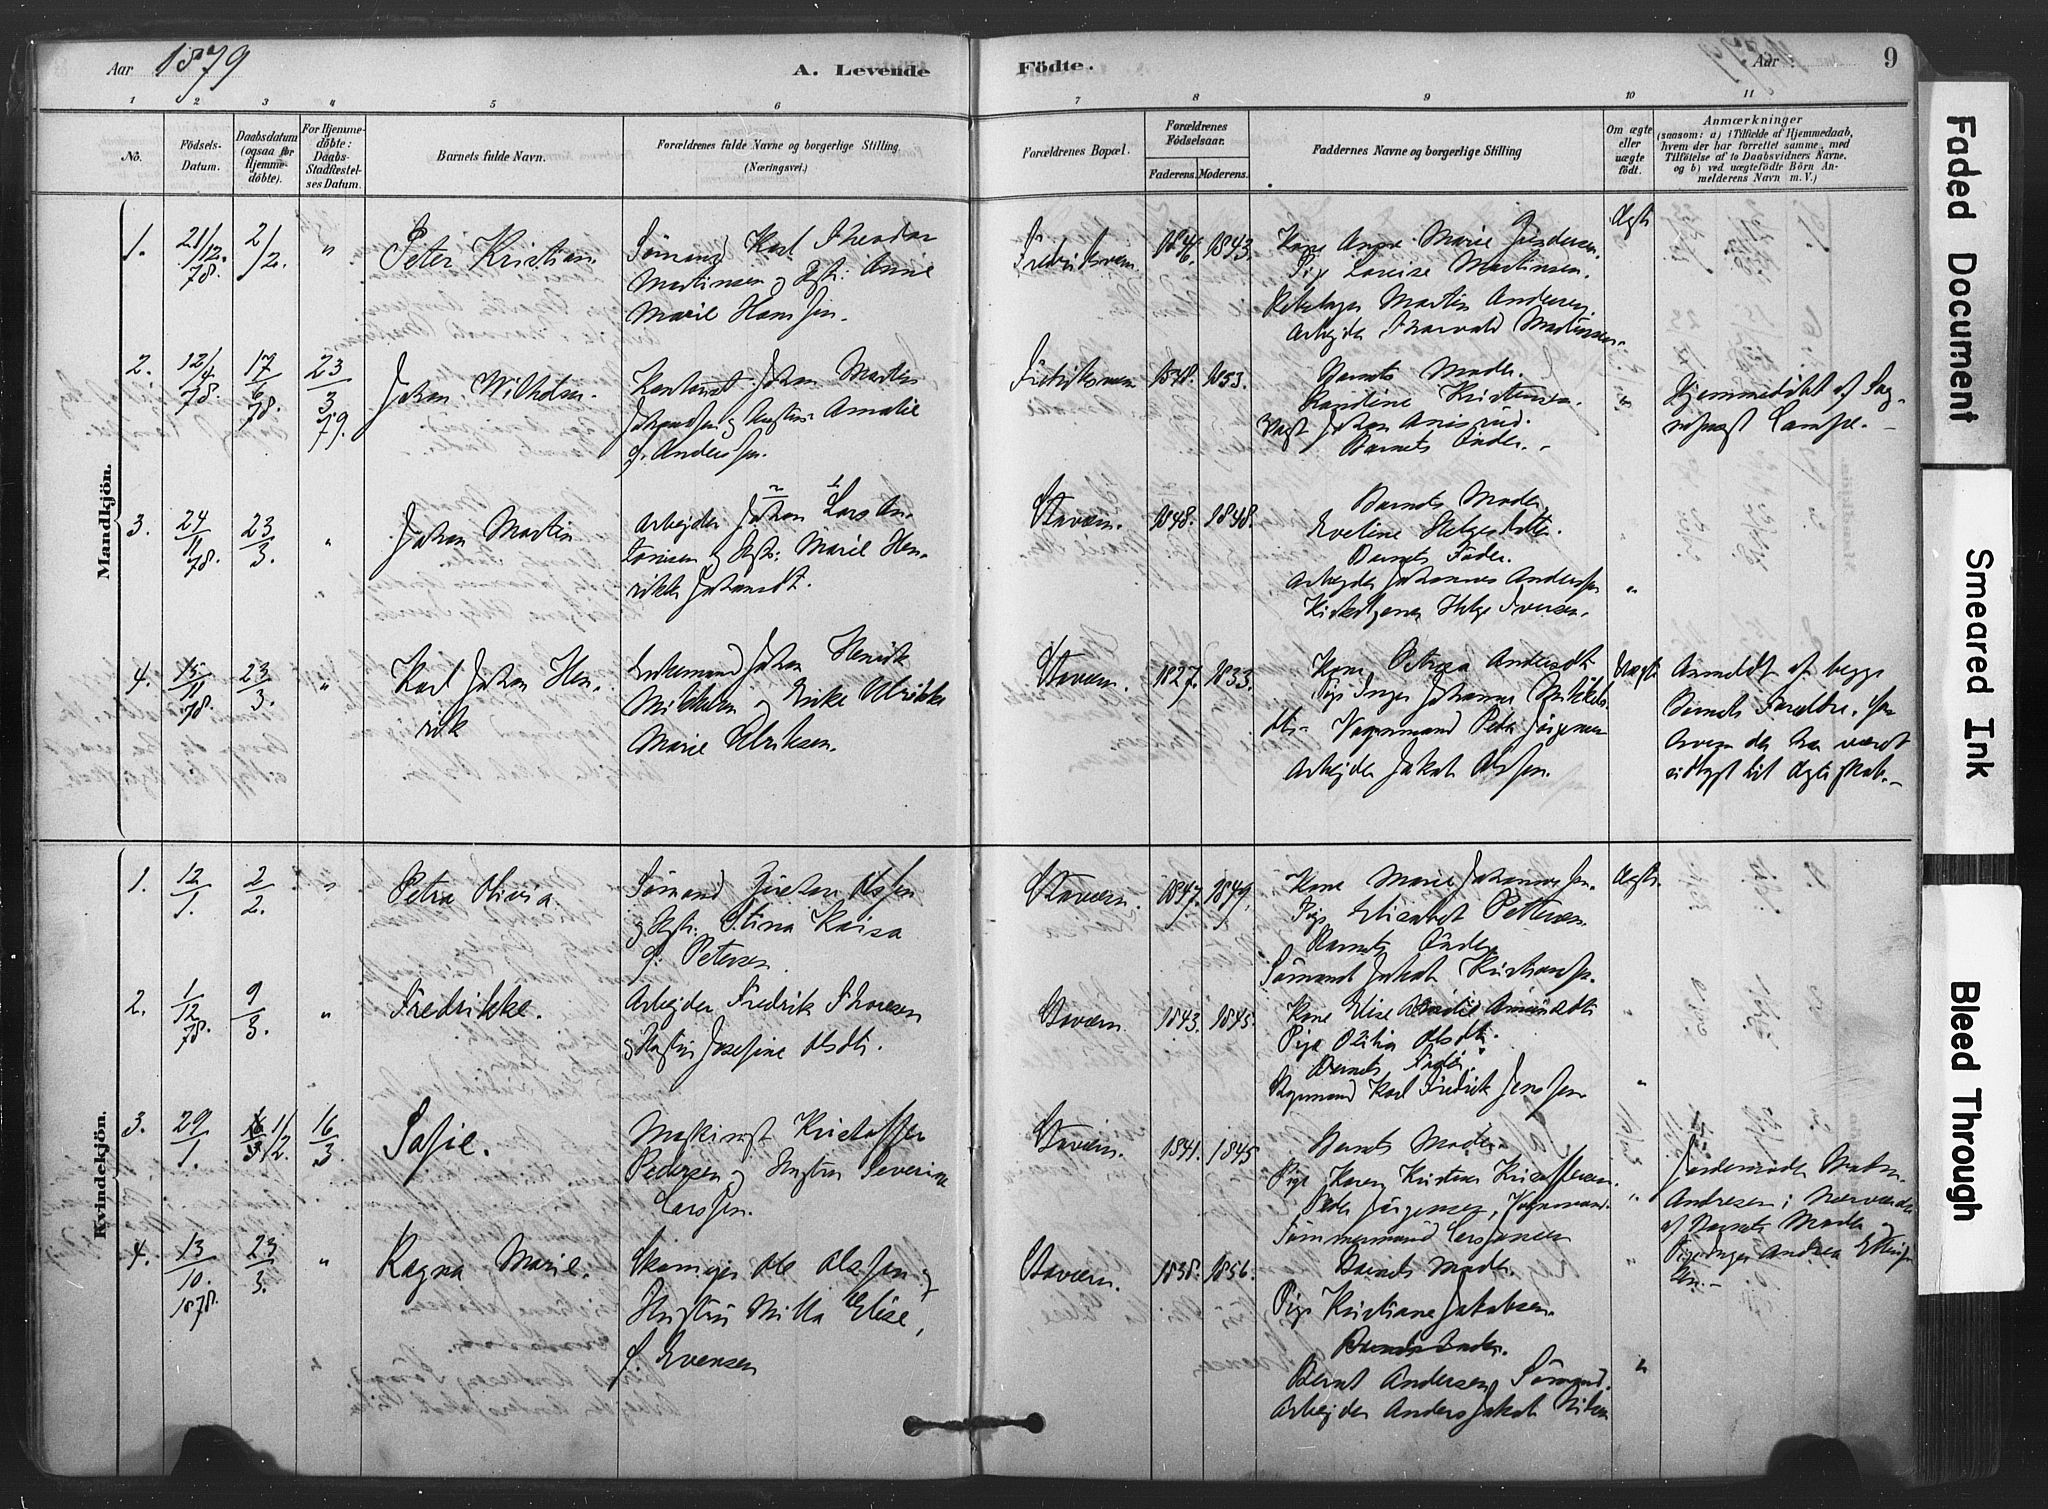 Aar 1879
A. Levende Födte.
Aar 1879
9
1 2 3 4 5 6 7 8 9 10 11
No.
Födsels-
Datum.
Daabsdatum
(ogsaa for
Hjemme-
döbte).
For Hjemme-
döbte:
Daabs-
Stadfæstel-
ses Datum.
Barnets fulde Navn.
Forældrenes fulde Navne og borgerlige Stilling
(Næringsvei.)
Forældrenes Bopæl.
Forældrenes
Födselsaar.
Faderens. Moderens.
Faddernes Navne og borgerlige Stilling
Om ægte
eller
uægte
födt.
Anmærkninger
(saasom: a) i Tilfælde af Hjemmedaab,
hvem der har forrettet samme, med
Tilföielse af to Daabsvidners Navne.
og b) ved uægtefödte Börn An-
melderens Navn m. V.)
Mandkjön.
1. 21/12 78. 2/2. "
Peter Kristian
Sömand Karl Theodor
Martinsen og Hst: Anne
Marie Hansen.
Fredriksværn 1846. 1843.
Kone Anne Marie Gundersen.
Pige Lovise Martinsen.
Martin Andersen
Arbejder Thorvald Martinsen.
Ægte
2. 12/4 78. 17/6 78. 23/3 79.
Johan Wilhelm.
Kontorist Johan Martin
Johansen og Hustru Amalie
f. Andersen.
Fredriksværn 1848. 1853.
Barnets Moder.
Randine Kristensen.
Johan Anisrud.
Barnets Fader.
"
Hjemmedöbt af Sog-
nepræst Lampe.
3. 24/11 78. 23/3. "
Johan Martin
Arbejder Johan Lars An-
tonisen og Hst: Marie Hen-
rikke Johansdt.
Stavern. 1848. 1848.
Barnets Moder
Eveline Helgesdatter.
Barnets Fader.
Arbejder Johannes Andersen
Kirketjener Helge Iversen.
"
4. 15/11 78. 23/3. "
Karl Johan Hen-
rik
Enkemand Johan Henrik
og Enke Ulrikke
Marie Ulriksen.
Stavern. 1827. 1833.
Kone Petrea Andersdt
Pige Inger Johanne
dt. Vognmand Peder Jörgensen
Arbejder Jakob Olsen.
Uægte
Anmeldt af begge
Barnets Forældre.
der har været
udlyst til Ægteskab.
Kvindekjön.
1. 12/1. 2/2. "
Petra Olivia
Sömand Olsen
og Hst: Stina Kaisa
f. Petersen.
Stavern. 1847. 1849.
Kone Marie Johannesen.
Pige Elisabet Pettersen.
Barnets Fader
Sömand Jakob Kristiansen.
Ægte.
2. 1/12 78. 9/3. "
Fredrikke.
Arbejder Fredrik Thoresen
og Hustru Josefine Olsdt.
Stavern. 1843. 1845.
Kone Elise Amundsdt
Pige Olsdt.
Barnets Fader.
Karl Fredrik Jensen
"
3. 29/1. 11/2. 16/3.
Sofie.
Maskinist Kristoffer
Pedersen og Hustru Severine
Larssen.
Stavern. 1841. 1845
Barnets Moder.
Pige Karen Kristine Kristoffersen.
Peder Jörgensen, Vognmand.
Tömmermand Lars Jansen
"
Jordemoder
Andresen i Nærværelse
af Barnets Moder og
Pige Inger Andrea
4. 13/10. 1878. 23/3. "
Ragna Marie.
Ole Olsen og
Hustru Milla Elise,
f. Evensen
Stavern. 1838. 1856.
Barnets Moder.
Pige Kristiane Jakobsen.
Barnets Fader.
Bernt Andersen, Sömand.
Arbejder Anders Jakob Nilsen
"
Faded Document
Smeared Ink
Bleed Through